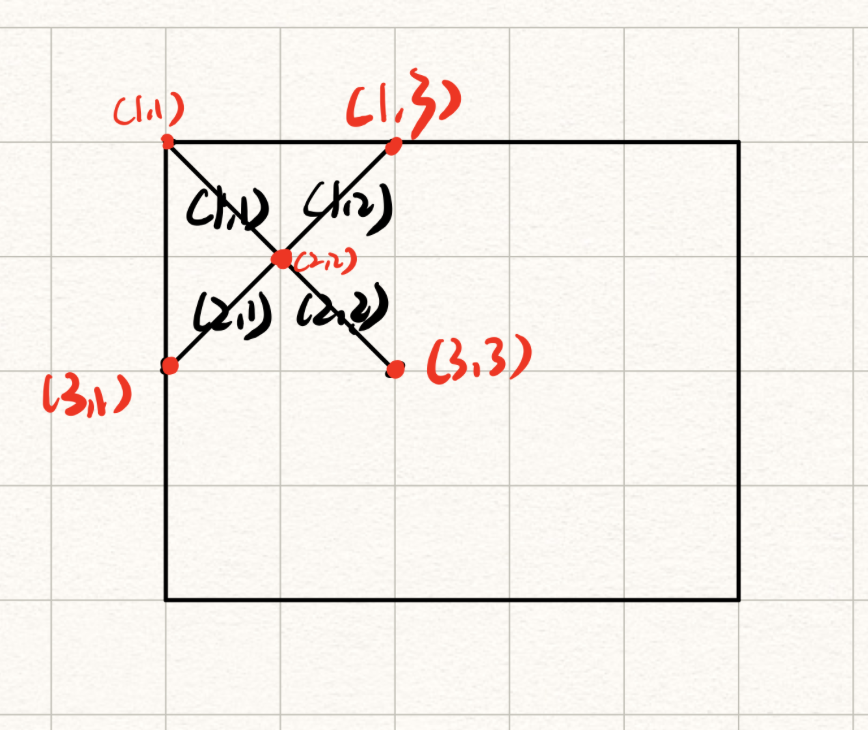 (1,1) (1,3)
(1,1) (1,2)
(2,2)
(2,1) (2,2)
(3,1) (3,3)